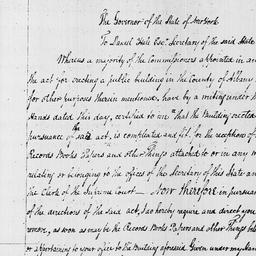 The Governor of the State of New York
To Daniel Hale Esqr. Secretary of the said State
Whereas a majority of the Commissioners appointed in an
the act for erecting a public building in the County of Albany
for other purposes therein mentioned, have by a writing under
Hands dated this day, certified to me "that the Building erected
pursuance of the said act, is compleated and fit for the reception of
Records Books Papers and other Things attached to or in any
relating or belonging to the offices of the Secretary of this State an
the Clerk of the Supreme Court — Now therefore in pursuan
of the directions of the said act, I do hereby require and direct you
remove, as soon as may be the Records Books Papers and other Things
or appertaining to your office to the Building aforesaid Given under my Han